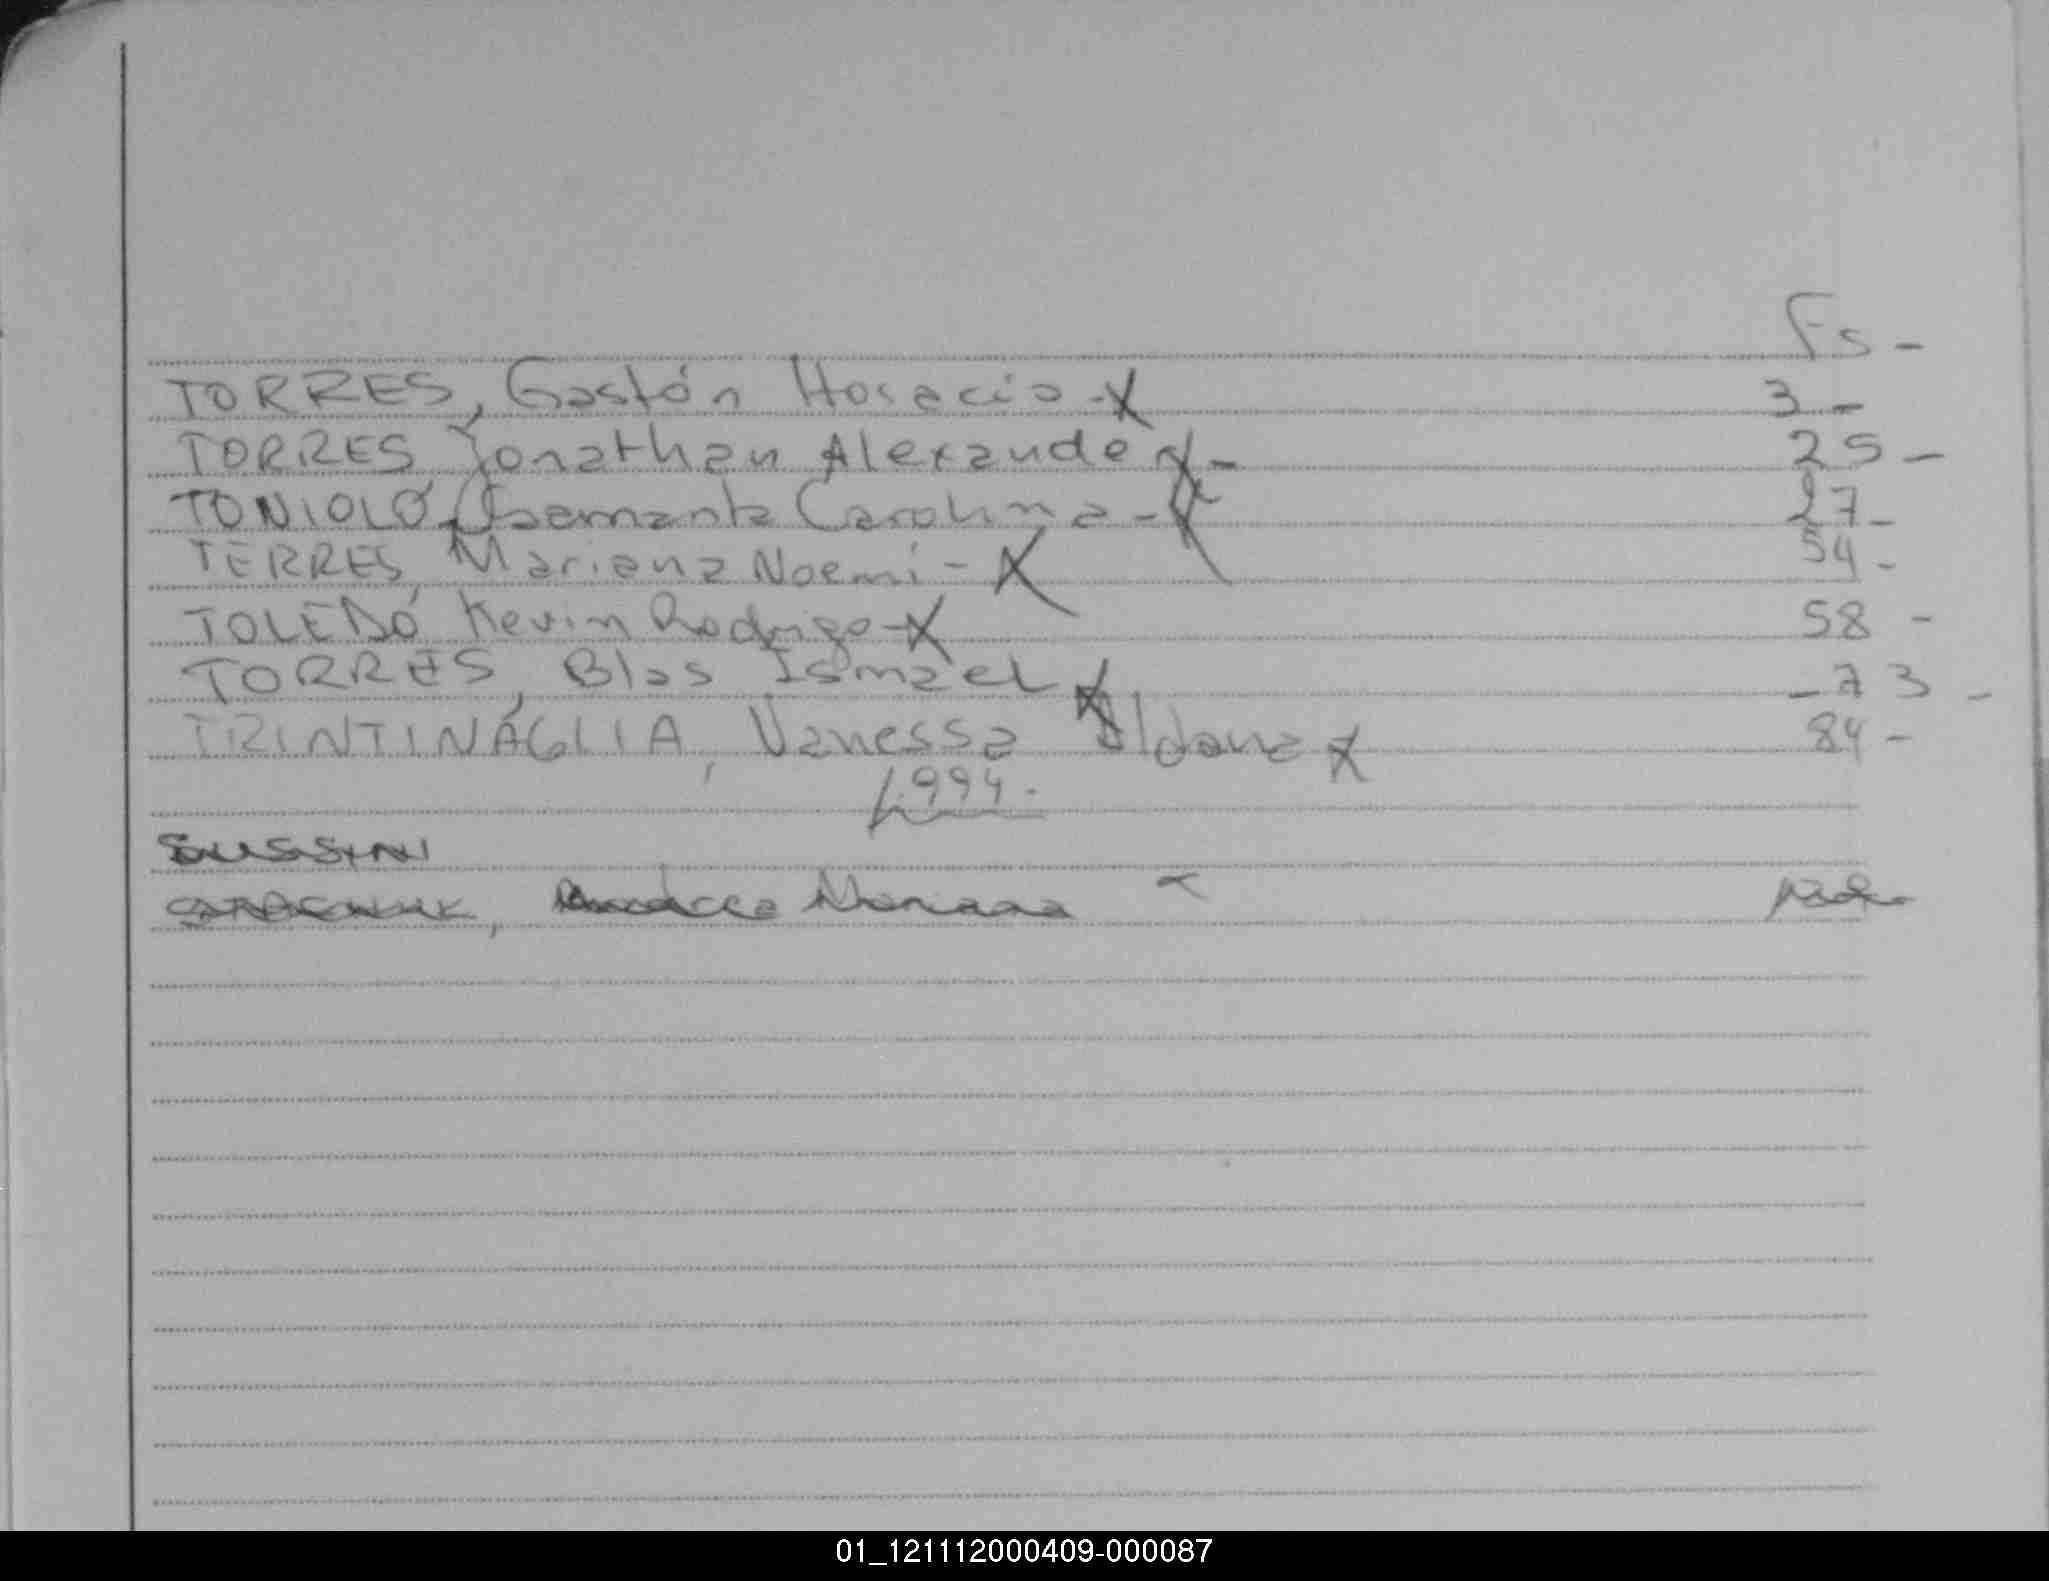 Fs -
TORRES, Gastón Horacio - X 3 -
TORRES, Jonathan Alexander X - 25 -
TONIOLO, Carolina - X 27 -
TERRES, Mariana Noemí - X 54 -
TOLEDO, Kevin Rodrigo - X 58 -
TORRES, Blas Ismael X - 73 -
TRINTINAGLIA, Vanessa Aldana X 84 -
1994 -
SUSSINI
01_121112000409-000087